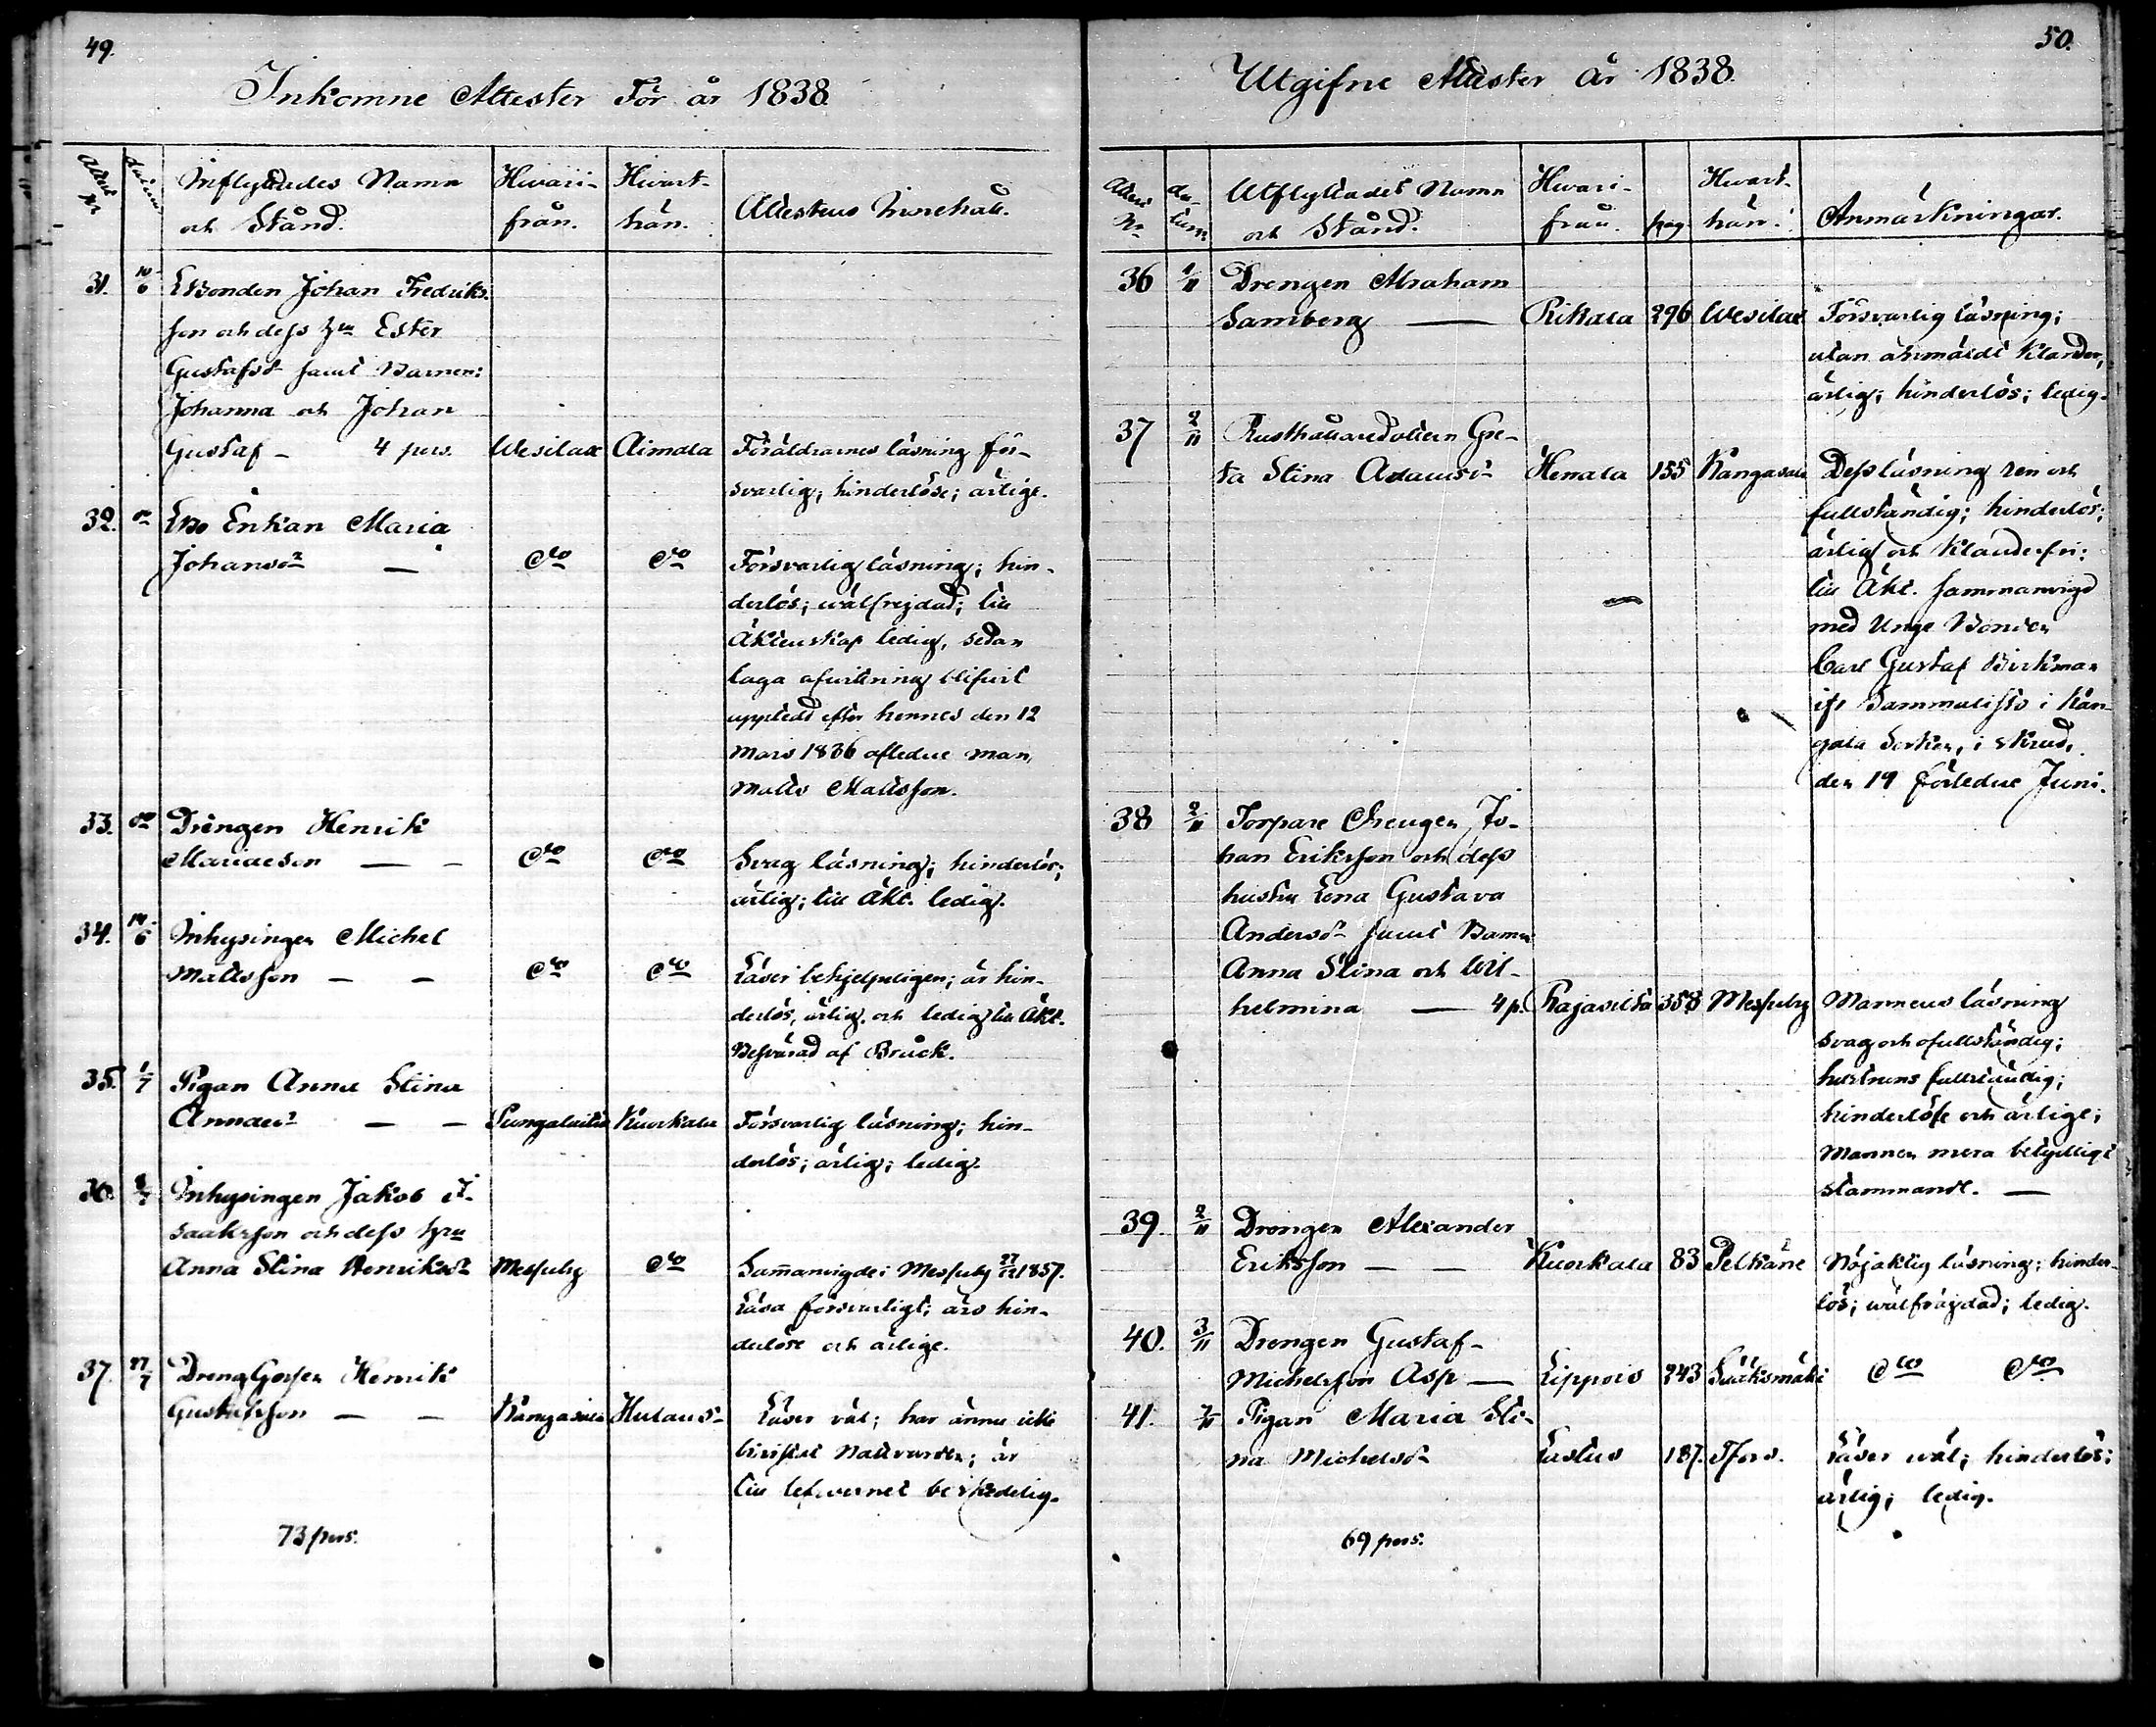 49.
Inkomne Attester För år 1838.
Attest nr
datum
Inflyttades Namn och Stånd.
Hwari-från.
Hwart-hän.
Attestens Innehåll.
31. 10/6 Bonden Johan Fredriks-
son och dess hu Ester
Gustafsdr samt Barnen:
Johanna och Johan
Gustaf - 4 pers. Wesilax Aimala Föräldrarnes läsning för-
svarlig; hinderlöse; ärlige.
32. do Enkan Maria
Johansdr — do do Försvarlig läsning; hin-
derlös; wälfrejdad; till
Äktenskap ledig, sedan
laga afvittring blifvit
upptedd efter hennes den 12
Mars 1836 afledne man,
Matts Mattsson.
33. do Drängen Henrik
Mariaeson — - do do Svag läsning; hinderlös;
ärlig; till Äkt. ledig.
34. 14/6 Inhysingen Michel
Mattsson — — do do Läser behjelpeligen; är hin-
derlös, ärlig och ledig till Äkt.
Besvärad af Bråck.
35. 1/7 Pigan Anna Stina
Annaedr — — Kuorkala Försvarlig läsning; hin-
derlös; ärlig; ledig.
36. Inhysingen Jakob I-
saaksson och dess hru
Anna Stina Henriksdr Messuby do Sammanvigde i Messuby 27/12 1837.
Läsa försvarligt; äro hin-
derlöse och ärlige.
37. 27/7 Dreng Gossen Henrik
Gustafsson — — Kangasala Läser väl; har ännu icke
Nattvarden; är
73 pers.
50.
Utgifne Attester År 1838.
Attest Nr
da-tum
Utflyttades Namn och Stånd.
Hwari-från.
pag.
Hwart-hän.
Anmärkningar.
36 1/11 Drengen Abraham
Samberg — Rikala 296 Wesilax Försvarlig läsning;
utan anmäldt klander,
ärlig; hinderlös; ledig.
37 2/11 Rusthållaredottern Gre-
ta Stina Adamsdr Henala 155 Kangasala Dess läsning ren och
fullständig; hinderlös;
ärlig och klanderfri:
till Äkt. sammanvigd
med Unge Bonden
Carl Gustaf Birkman
ifr Sammalisto i Kan-
gala Socken, i
den 19 förledne Juni.
38 2/11 Torpare Drengen Jo-
han Eriksson och dess
hustru Lena Gustava
Andersdr samt Barn
Anna Stina och Wil-
helmina — 4 p. Rajasilta 358 Messuby Mannens läsning
svag och ofullständig;
hustruns fullständig;
hinderlöse och ärlige;
Mannen mera betydligt
stammande. —
39. 2/11 Drengen Alexander
Eriksson — — Kuorkala 83 Pelkäne Nöjaktig läsning; hinder-
lös; wälfrägdad; ledig.
40. 3/11 Drengen Gustaf
Michelsson Asp — Lippois 243 Sääksmäki do do
41. 7/11 Pigan Maria Sti-
na Michelsdr Lastus 187. Tfors. Läser wäl; hinderlös;
ärlig; ledig.
69 pers.